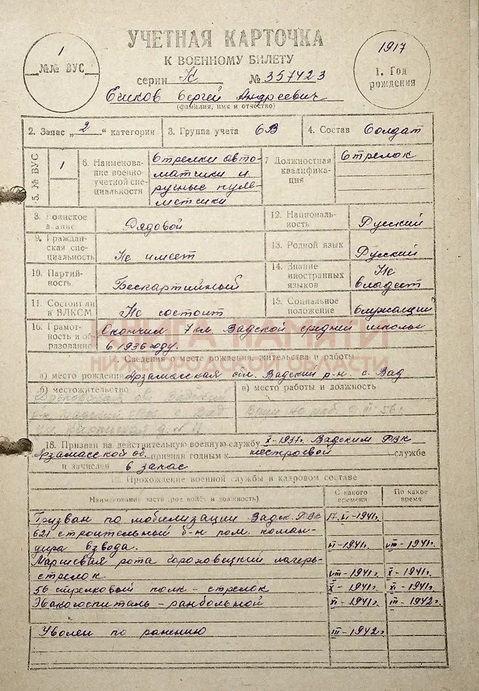 1
№№ ВУС
УЧЕТНАЯ КАРТОЧКА
К ВОЕННОМУ БИЛЕТУ
серии № 357423
Сергей Андреевич
(фамилия, имя и отчество)
1917
1. Год рождения
2. Запас "2" категории
3. Группа учета 6В
4. Состав Солдат
5. № ВУС
1
6. Наименование военно-учетной специальности
Стрелки автоматчики и ручные пулеметчики
7. Должностная квалификация
Стрелок
8. Воинское звание Рядовой
9. Гражданская специальность Не имеет
10. Партийность Беспартийный
11. Состоит ли в ВЛКСМ Не состоит
12. Национальность Русский
13. Родной язык Русский
14. Знание иностранных языков Не владеет
15. Социальное положение Служащий
16. Грамотность и образование Окончил 7 кл. Вадской средней школы
в 1936 году.
КНИГА ПАМЯТИ
Сведения о месте рождения, жительства и работы
а) место рождения Арзамасская обл. Вадский р-н с. Вад
б) местожительство
в) место работы и должность
18. Призван на действительную военную службу X-1937г. Вадским РВК
Арзамасской об. признан годным к нестроевой службе
и зачислен в запас
Прохождение военной службы в кадровом составе
Наименование части (род войск и должность)
С какого времени
По какое время
Призван по мобилизации Вадск. РВК 17.VI-1941г.
621 строительный б-н пом. командира взвода. VI-1941г. VIII-1941г.
Маршевый рота Гороховецкий лагерь-
стрелок VIII-1941г. X-1941г.
56 стрелковый полк - стрелок X-1941г.
Эвакогоспиталь - ранбольной 1941г. III-1942г.
Уволен по ранению III-1942г.